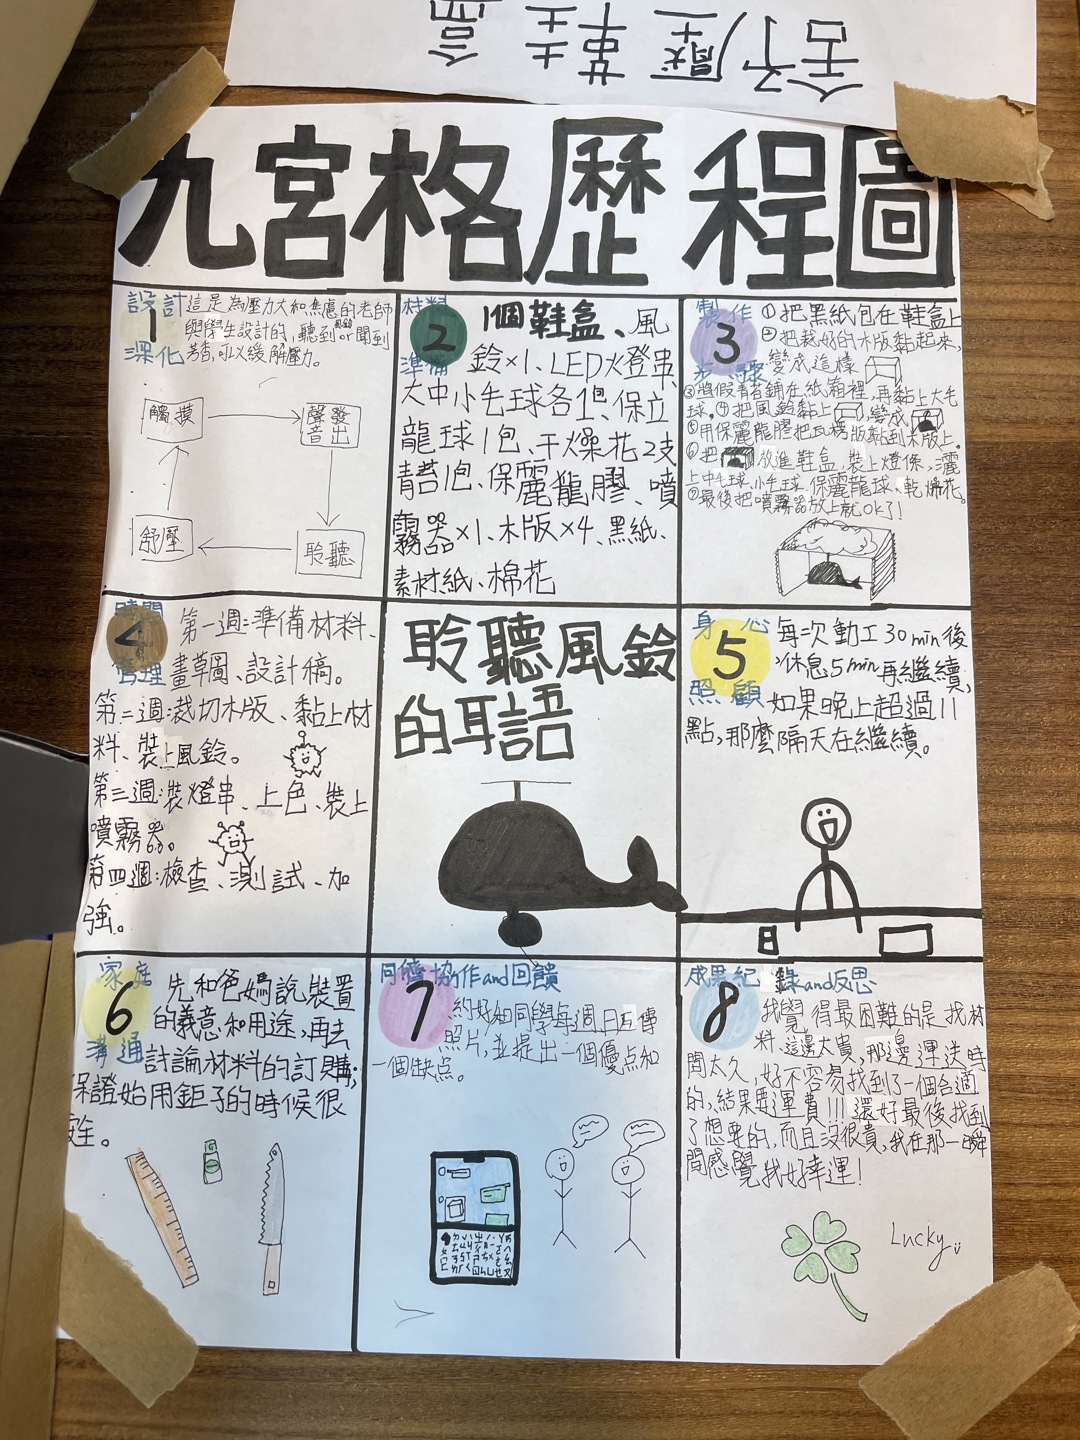 舒壓
九宮格歷程圖
1
設計
深化
這是為壓力大和焦慮的老師
與學生設計的,聽到風鈴or聞到
芳香,可以緩解壓力。
觸摸
聲音發出
聆聽
舒壓
2
材料
準備
1個鞋盒、風
鈴×1、LED火登串
大中小毛球各1包、保立
龍球1包、干燥花2支
青苔1包、保麗龍膠、噴
霧器×1、木版×4、黑紙、
素材紙、棉花
3
製作
步驟
①把黑紙包在鞋盒上
②把裁好的木版黏起來,
變成這樣
③將假青苔鋪在紙箱裡,再黏上大毛
球。④把風鈴黏上 ,變成
⑤用保麗龍膠把瓦楞版黏到木版上。
⑥把 放進鞋盒,裝上燈條、灑
上中毛球、小毛球、保麗龍球、乾燥花。
⑦最後把噴霧器放上就OK了!
4
時間
管理
第一週:準備材料、
畫草圖、設計稿。
第二週:裁切木版、黏上材
料、裝上風鈴。
第三週:裝燈串、上色、裝上
噴霧器。
第四週:檢查、測試、加
強。
聆聽風鈴
的耳語
5
身心
照顧
每次動工30min後
休息5min再繼續,
如果晚上超過11
點,那麼隔天在繼續。
6
家庭
溝通
先和爸媽說裝置
的義意和用途,再去
討論材料的訂購;
保證始用鉅子的時候很
安全。
7
同儕協作and回饋
約好如同學每週日互傳
照片,並提出一個優点和
一個缺点。
8
成果紀錄and反思
我覺得最困難的是找材
料、這邊太貴,那邊運送時
間太久,好不容易找到了一個合適
的,結果要運費!!!還好最後找到
了想要的,而且沒很貴,我在那一瞬
間感覺我好幸運!
Lucky